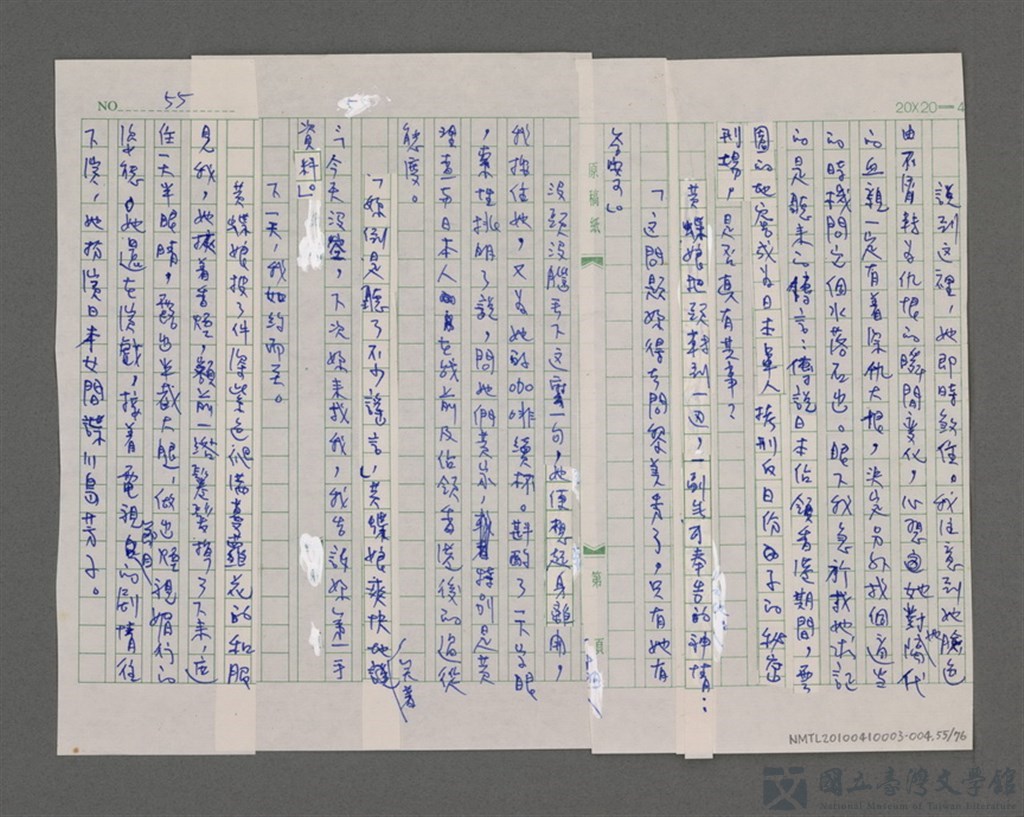 20X20—4
說到這裡，她即時煞住。我注意到她臉色
由不屑轉為仇恨的瞬間變化，心想她對隔代
的血親一定有著深仇大恨，決定另外找個適當
的時機問它個水落石出。眼下我急於找她求記
的是聽來的傳言：傳說日本佔領香港期間，雲
園的地窖成為日本軍人拷刑白日份子的秘密
刑場，是否真有其事？
黃蝶娘把頭轉到一邊，一副無可奉告的神情：
「這問題妳得去問黎美秀了，只有她有
答案了。」
原稿紙
第 頁
沒頭沒腦丟下這一句，她便想起身離開，
我按住她，又為她的咖啡續杯。斟酌了一下字眼
，索性挑明了說，問她們黃家，特別是黃
理查與日本人在戰前及佔領香港後的過從
態度。
「妳倒是聽了不少謠言，」黃蝶娘爽快地笑著
「今天沒空，下次妳來找我，我告訴妳第一手
資料。」
下一天，我如約而至。
黃蝶娘披了件深紫色爬滿蔓蘿花的和服
見我，她擦著香煙，額前一綹髮掉了下來，遮
住一大半眼睛，露出半截大腿，做出煙視媚行的
姿態，她還在演戲，接著電視節目的劇情往
下演，她扮演日本女間諜川島芳子。
NO 55
NMTL20100410003-004.55/76
國立臺灣文學館
National Museum of Taiwan Literature